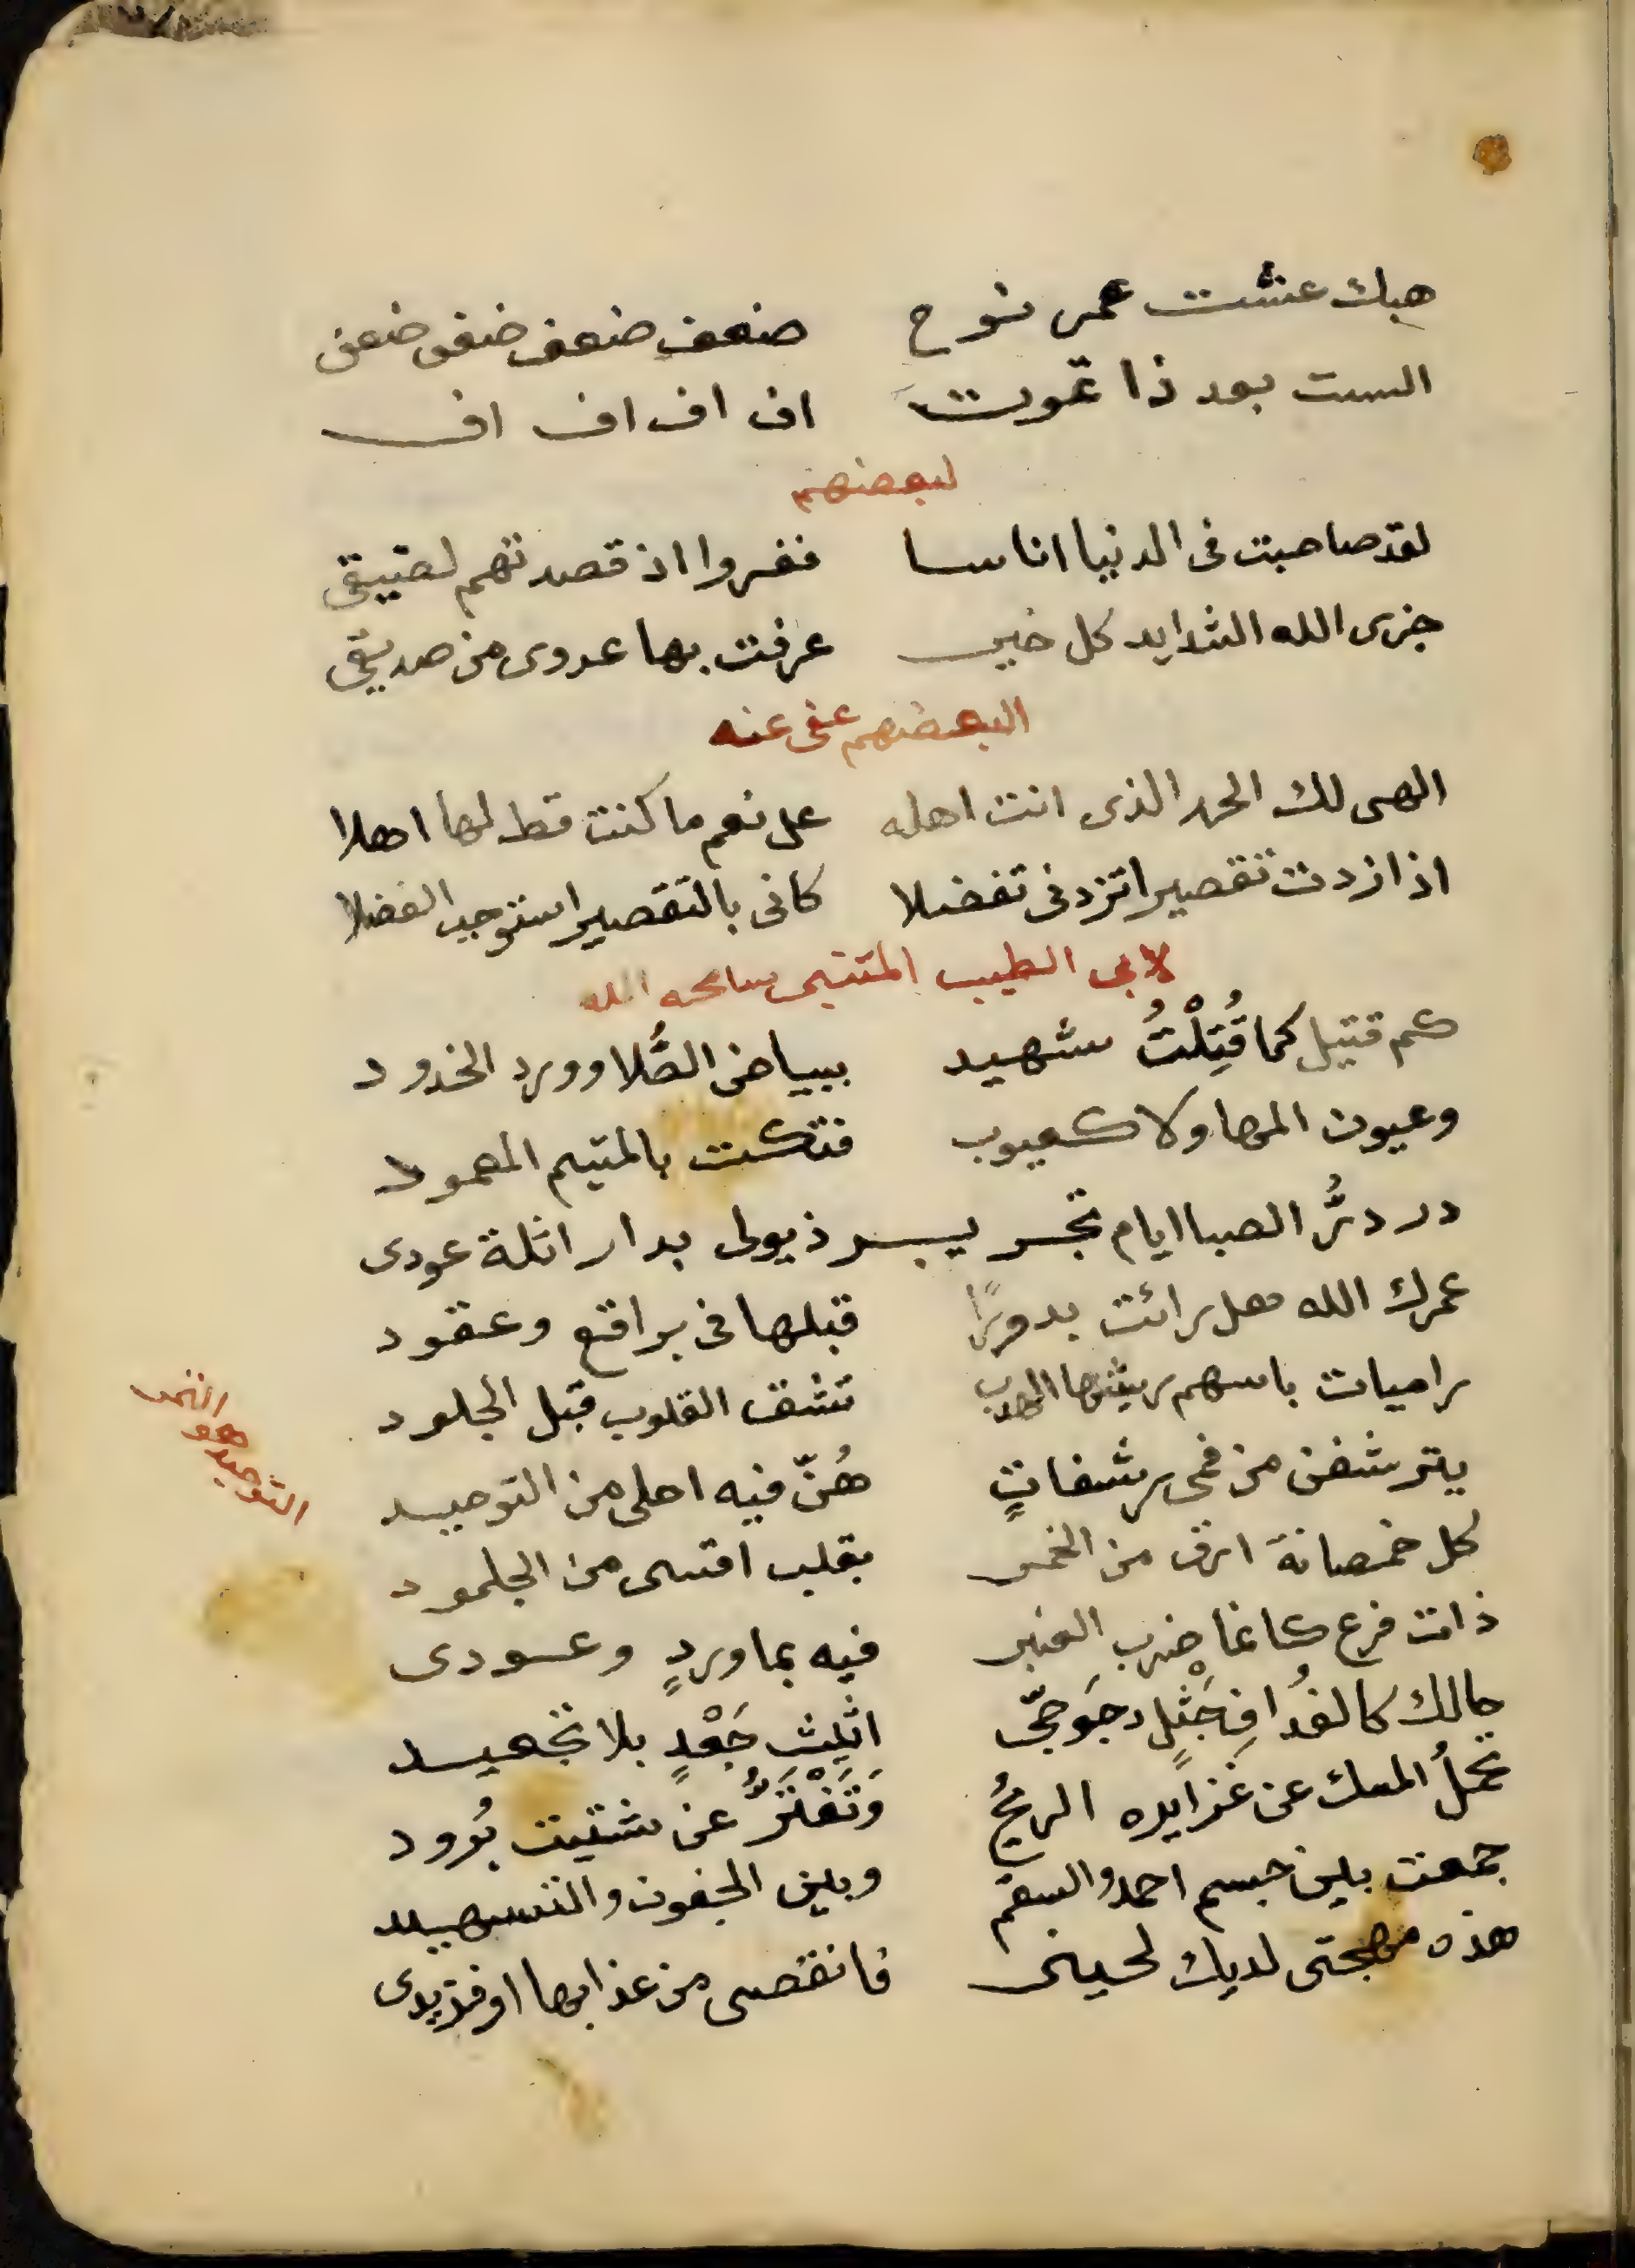 هبك عشت عمر نوح ضعف ضعف ضعف ضعف
الست بعد ذا تموت اف اف اف اف
لبعضهم
لقد صاحبت فى الدنيا اناسا ففروا اذ قصدتهم لضيقى
جزى الله الشدايد كل خير عرفت بها عدوى من صديقى
البعضهم عفى عنه
الهى لك الحمد الذى انت اهله على نعم ما كنت قط لها اهلا
اذا زدت تقصيرا تزدنى تفضلا كانى بالتقصير استوجب الفضلا
لابى الطيب المتنبى سامحه الله
كم قتيل كما قُتِلْتُ شهيد ببياض الطُّلا وورد الخدود
وعيون المها ولا كعيون فتكت بالمتيم المعمود
در درُّ الصبا ايام تجرير ذيولى بدار اثلة عودى
عمرك الله هل رائت بدورًا قبلها فى براقع وعقود
راميات باسهم ريشها الهدب تشق القلوب قبل الجلود
يترشفن من فمى رشفاتٍ هُنّ فيه احلى من التوحيد
التوحيد هو التمر
كل خمصانة ارق من الخمر بقلب اقسى من الجلمود
ذات فرع كانما ضرب العنبر فيه بماوردٍ وعودى
حالك كالغُدافِ جَثْلٍ دجَوجىّ اثيثٍ جَعْدٍ بلا تجعيد
تحملُ المسك عن غدايره الريحُ وَتَفْتَرُّ عن شتيت بُرود
جمعت بين جسم احمد والسقم وبين الجفون والتسهيد
هذه مهجتى لديك لحينى فانقصى من عذابها او فزيدى